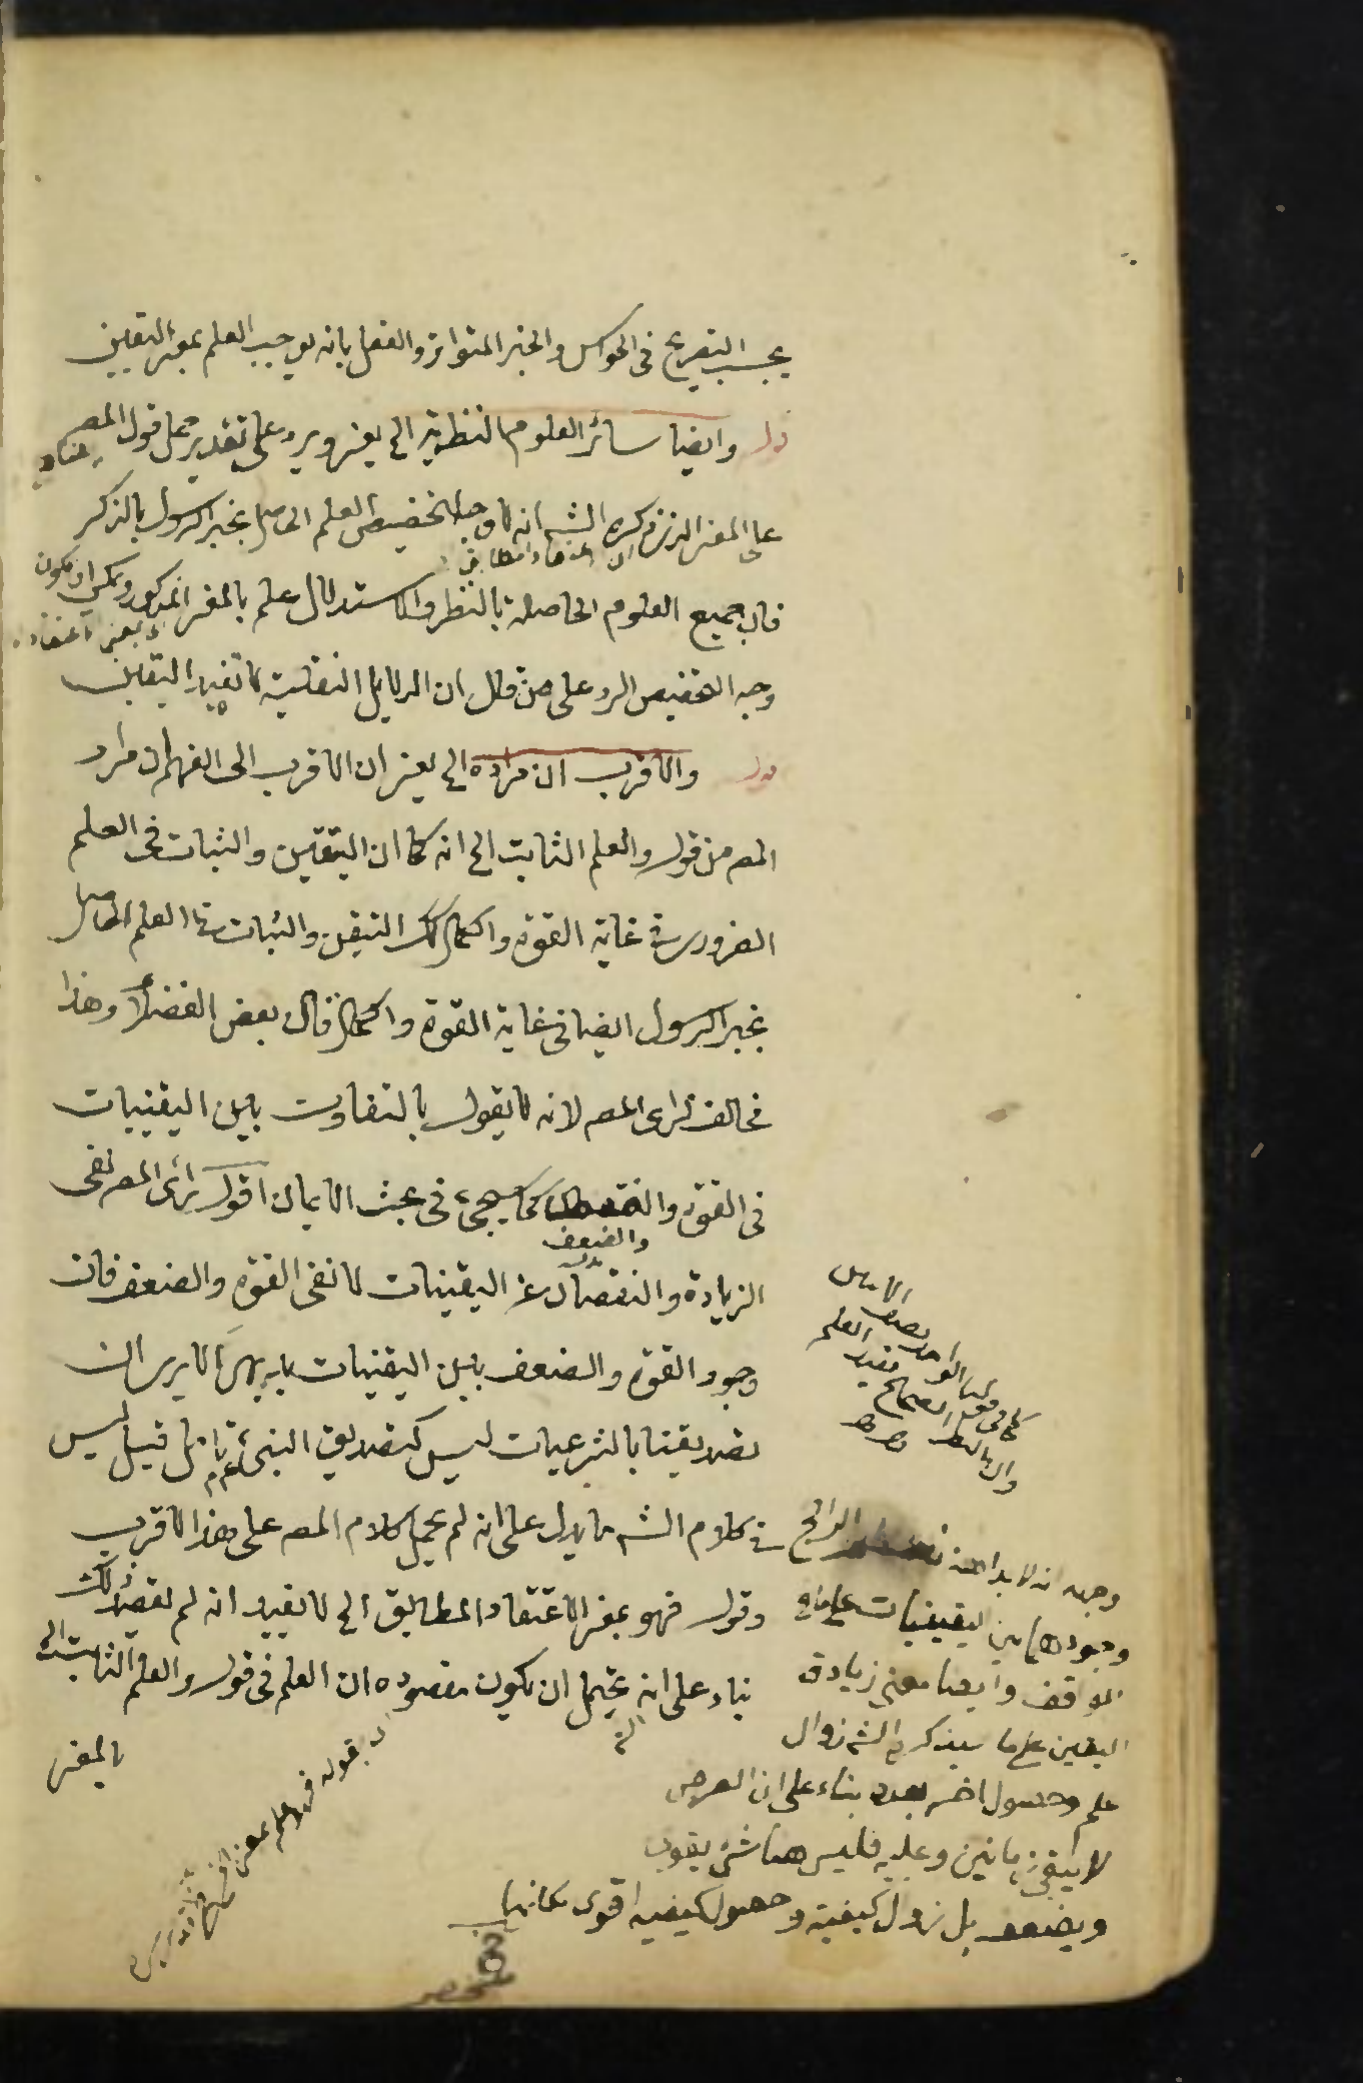 يجب التصريح في الحواس والخبر المتواتر والعقل بانه يوجب العلم بمعنى اليقين
قوله وايضا سائر العلوم النظرية الخ يعني ويرد على تقدير حمل قول المص
على المعنى الذي ذكره الشه انه لا وجه لتخصيص العلم الحاصل بخبر الرسول بالذكر
فان جميع العلوم الحاصلة بالنظر والاستدلال علم بالمعنى المذكور ويمكن ان يكون
وجه التخصيص الرد على من قال ان الدلايل النقلية لا تفيد اليقين
قوله والاقرب ان مراده الخ يعني ان الاقرب الى الفهم ان مراد
المص من قوله والعلم الثابت الخ انه كما ان التيقن والثبات في العلم
الضروري في غاية القوة والكمال كذلك التيقن والثبات في العلم الحاصل
بخبر الرسول ايضا في غاية القوة والكمال قال بعض الفضلاء وهذا
مخالف لرأى المص لانه لا يقول بالتفاوت بين اليقينيات
في القوة والضعف كما سيجيء في بحث الايمان اقول رأى المص نفى
الزيادة والنقصان عن اليقينيات لا نفى القوة والضعف فان
وجود القوة والضعف بين اليقينيات بديهي الا يرى ان
تصديقنا بالشرعيات ليس كتصديق النبي عم تأمل قيل ليس
في كلام الشه ما يدل على انه لم يحمل كلام المص على هذا الاقرب
وقوله فهو بمعنى الاعتقاد المطابق الخ لا يفيد انه لم يقصد ذلك
بناء على انه يحتمل ان يكون مقصوده ان العلم في قوله والعلم الثابت الخ
بالمعنى
وجهه انه لا بداهة
وجودها بين اليقينيات على ما في
المواقف وايضا معنى زيادة
اليقين على ما سيذكره الشه زوال
علم وحصول اخر بعده بناء على ان العرض
لا يبقى زمانين وعليه فليس هنا شئ يقوى
ويضعف بل زوال كيفية وحصول كيفية اقوى مكانها